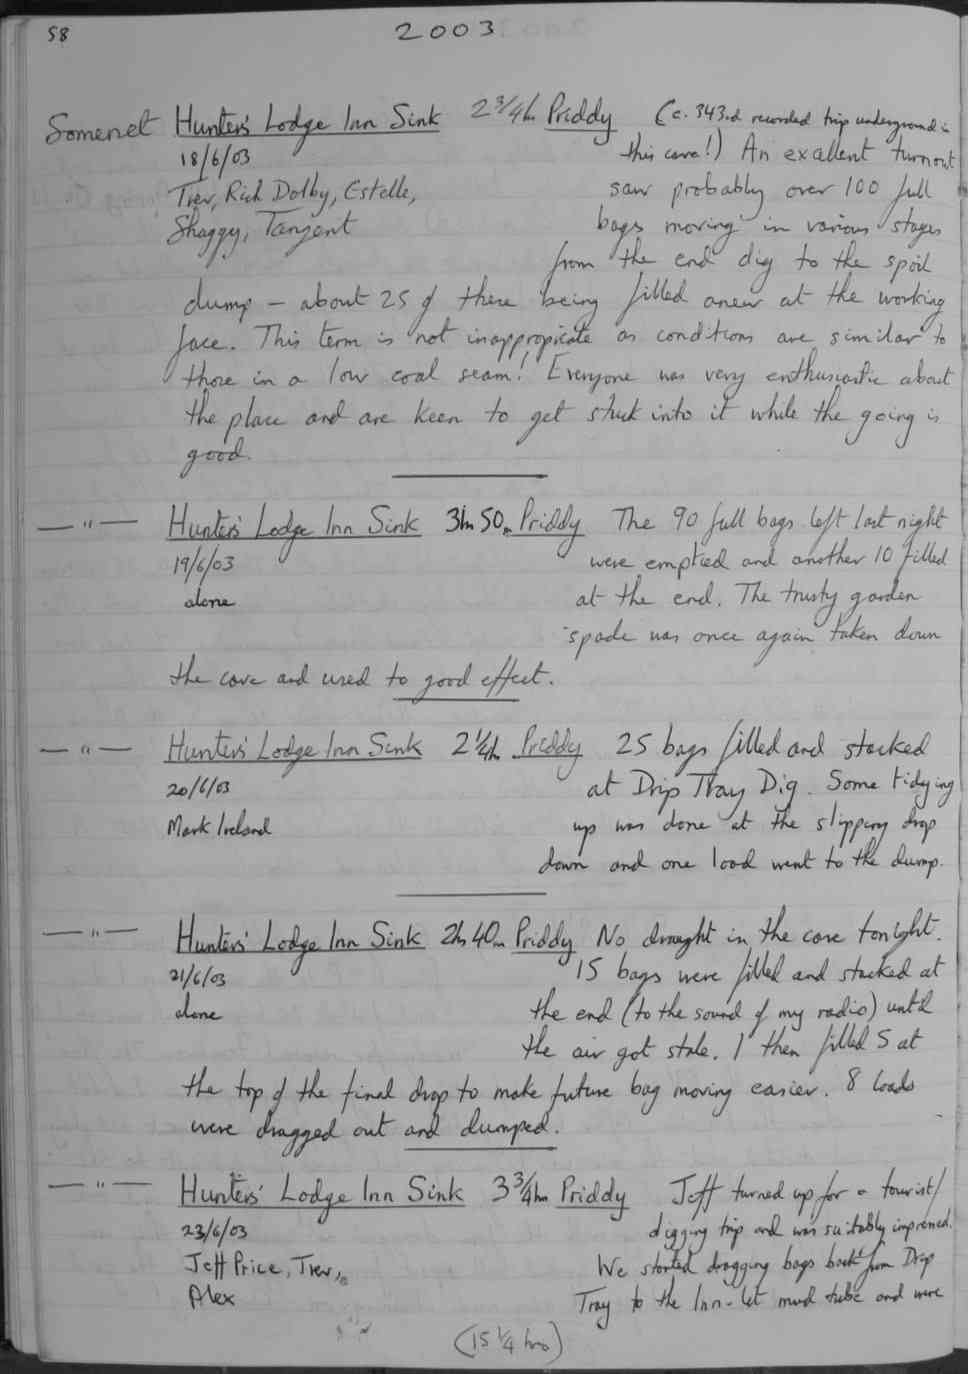 58
2003
Somerset Hunters' Lodge Inn Sink 2 3/4h Priddy (c. 343rd recorded trip underground in
18/6/03 this cave!) An excellent turnout
Trev, Rich Dolby, Estelle, saw probably over 100 full
Shaggy, Tangent bags moving in various stages
from the end dig to the spoil
dump – about 25 of these being filled anew at the working
face. This term is not inappropriate as conditions are similar to
those in a low coal seam! Everyone was very enthusiastic about
the place and are keen to get stuck into it while the going is
good.
— " — Hunters' Lodge Inn Sink 3h 50m Priddy The 90 full bags left last night
19/6/03 were emptied and another 10 filled
alone at the end. The trusty garden
spade was once again taken down
the cave and used to good effect.
— " — Hunters' Lodge Inn Sink 2 1/4h Priddy 25 bags filled and stacked
20/6/03 at Drip Tray Dig. Some tidying
Mark Ireland up was done at the slippery drop
down and one load went to the dump.
— " — Hunters' Lodge Inn Sink 2h 40m Priddy No draught in the cave tonight.
21/6/03 15 bags were filled and stacked at
alone the end (to the sound of my radio) until
the air got stale. I then filled 5 at
the top of the final drop to make future bag moving easier. 8 loads
were dragged out and dumped.
— " — Hunters' Lodge Inn Sink 3 3/4h Priddy Jeff turned up for a tourist/
23/6/03 digging trip and was suitably impressed.
Jeff Price, Trev, We started dragging bags back from Drip
Alex Tray to the Inn-let mud tube and were
(15 1/4 hrs)